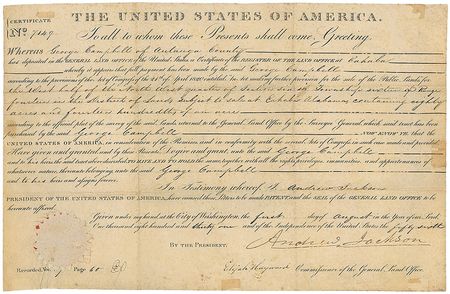 THE UNITED STATES OF AMERICA.
CERTIFICATE
No.
To all to whom these Presents shall come, Greeting.
Whereas George Campbell of Autauga County
has deposited in the GENERAL LAND OFFICE of the United States a Certificate of the REGISTER OF THE LAND OFFICE at Cahaba
whereby it appears that full payment has been made by the said George Campbell
according to the provisions of the Act of Congress of the 24th of April 1820 entitled An Act making further provision for the sale of the Public Lands for
the West half of the North West quarter of Section in Township of Range
fourteen in the District of Lands Subject to sale at Cahaba Alabama containing eighty
acres and fourteen hundredths of an acre
according to the official plat of the survey of the said Lands returned to the General Land Office by the Surveyor General, which said tract has been
purchased by the said George Campbell NOW KNOW YE, that the
UNITED STATES OF AMERICA, in consideration of the Premises and in conformity with the several Acts of Congress in such case made and provided
Have given and granted and by these presents Do give and grant unto the said George Campbell
and to his heirs the said tract above described TO HAVE AND TO HOLD the same, together with all the rights, privileges, immunities, and appurtenances of
whatsoever nature, thereunto belonging unto the said George Campbell
and to his heirs and assigns forever.
In Testimony whereof I, Andrew Jackson
PRESIDENT OF THE UNITED STATES OF AMERICA, have caused these Letters to be made PATENT and the SEAL of the GENERAL LAND OFFICE to be
hereunto affixed.
Given under my hand at the City of Washington, the first day of August in the Year of our Lord
One thousand eight hundred and thirty one and of the Independence of the United States the fifty sixth
BY THE PRESIDENT.
Andrew Jackson
Elijah Hayward Commissioner of the General Land Office.
Recorded, Vol. Page 60